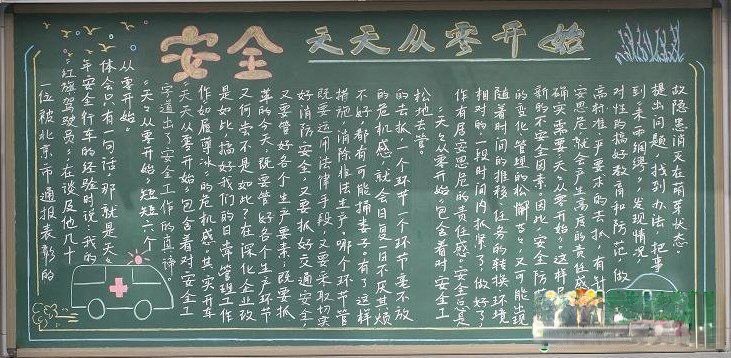 安全 天天从零开始
一位被北京市通报表彰的
"红旗驾驶员",在谈及他几十
年安全行车的经验时说:"我的
体会只有一句话,那就是"天天
从零开始"。
"天天从零开始"短短六个
字道出了安全工作的真谛。
"天天从零开始"包含着对安全工
作如履薄冰"的危机感。其实开车
是如此,搞好我们的日常管理工作
又何尝不是如此?在深化企业改
革的今天,既要管好各个生产环节
又要管好各个生产要素;既要抓
好消防安全,又要抓好交通安全;
既要运用法律手段,又要采取切实
措施,消除非法生产。哪个环节管
不好都有可能捅娄子。有了这样
的危机感,就会日复一日不厌其烦
的去抓一个环节一个环节毫不放
松地去管。
"天天从零开始"包含着对安全工
作有居安思危的责任感。安全总是
相对的一段时间内抓紧了,做好了,
随着时间的推移、任务的转换、环境
的变化、管理的松懈等,又可能出现
新的不安全因素。因此,安全防
确实需要"天天从零开始"。这样居
安思危,就会产生高度的责任感,
高标准、严要求的去抓,有针
对性的搞好教育和防范,做
到"未雨绸缪",发现情况,
提出问题,找到办法,把事
故隐患消灭在萌芽状态。